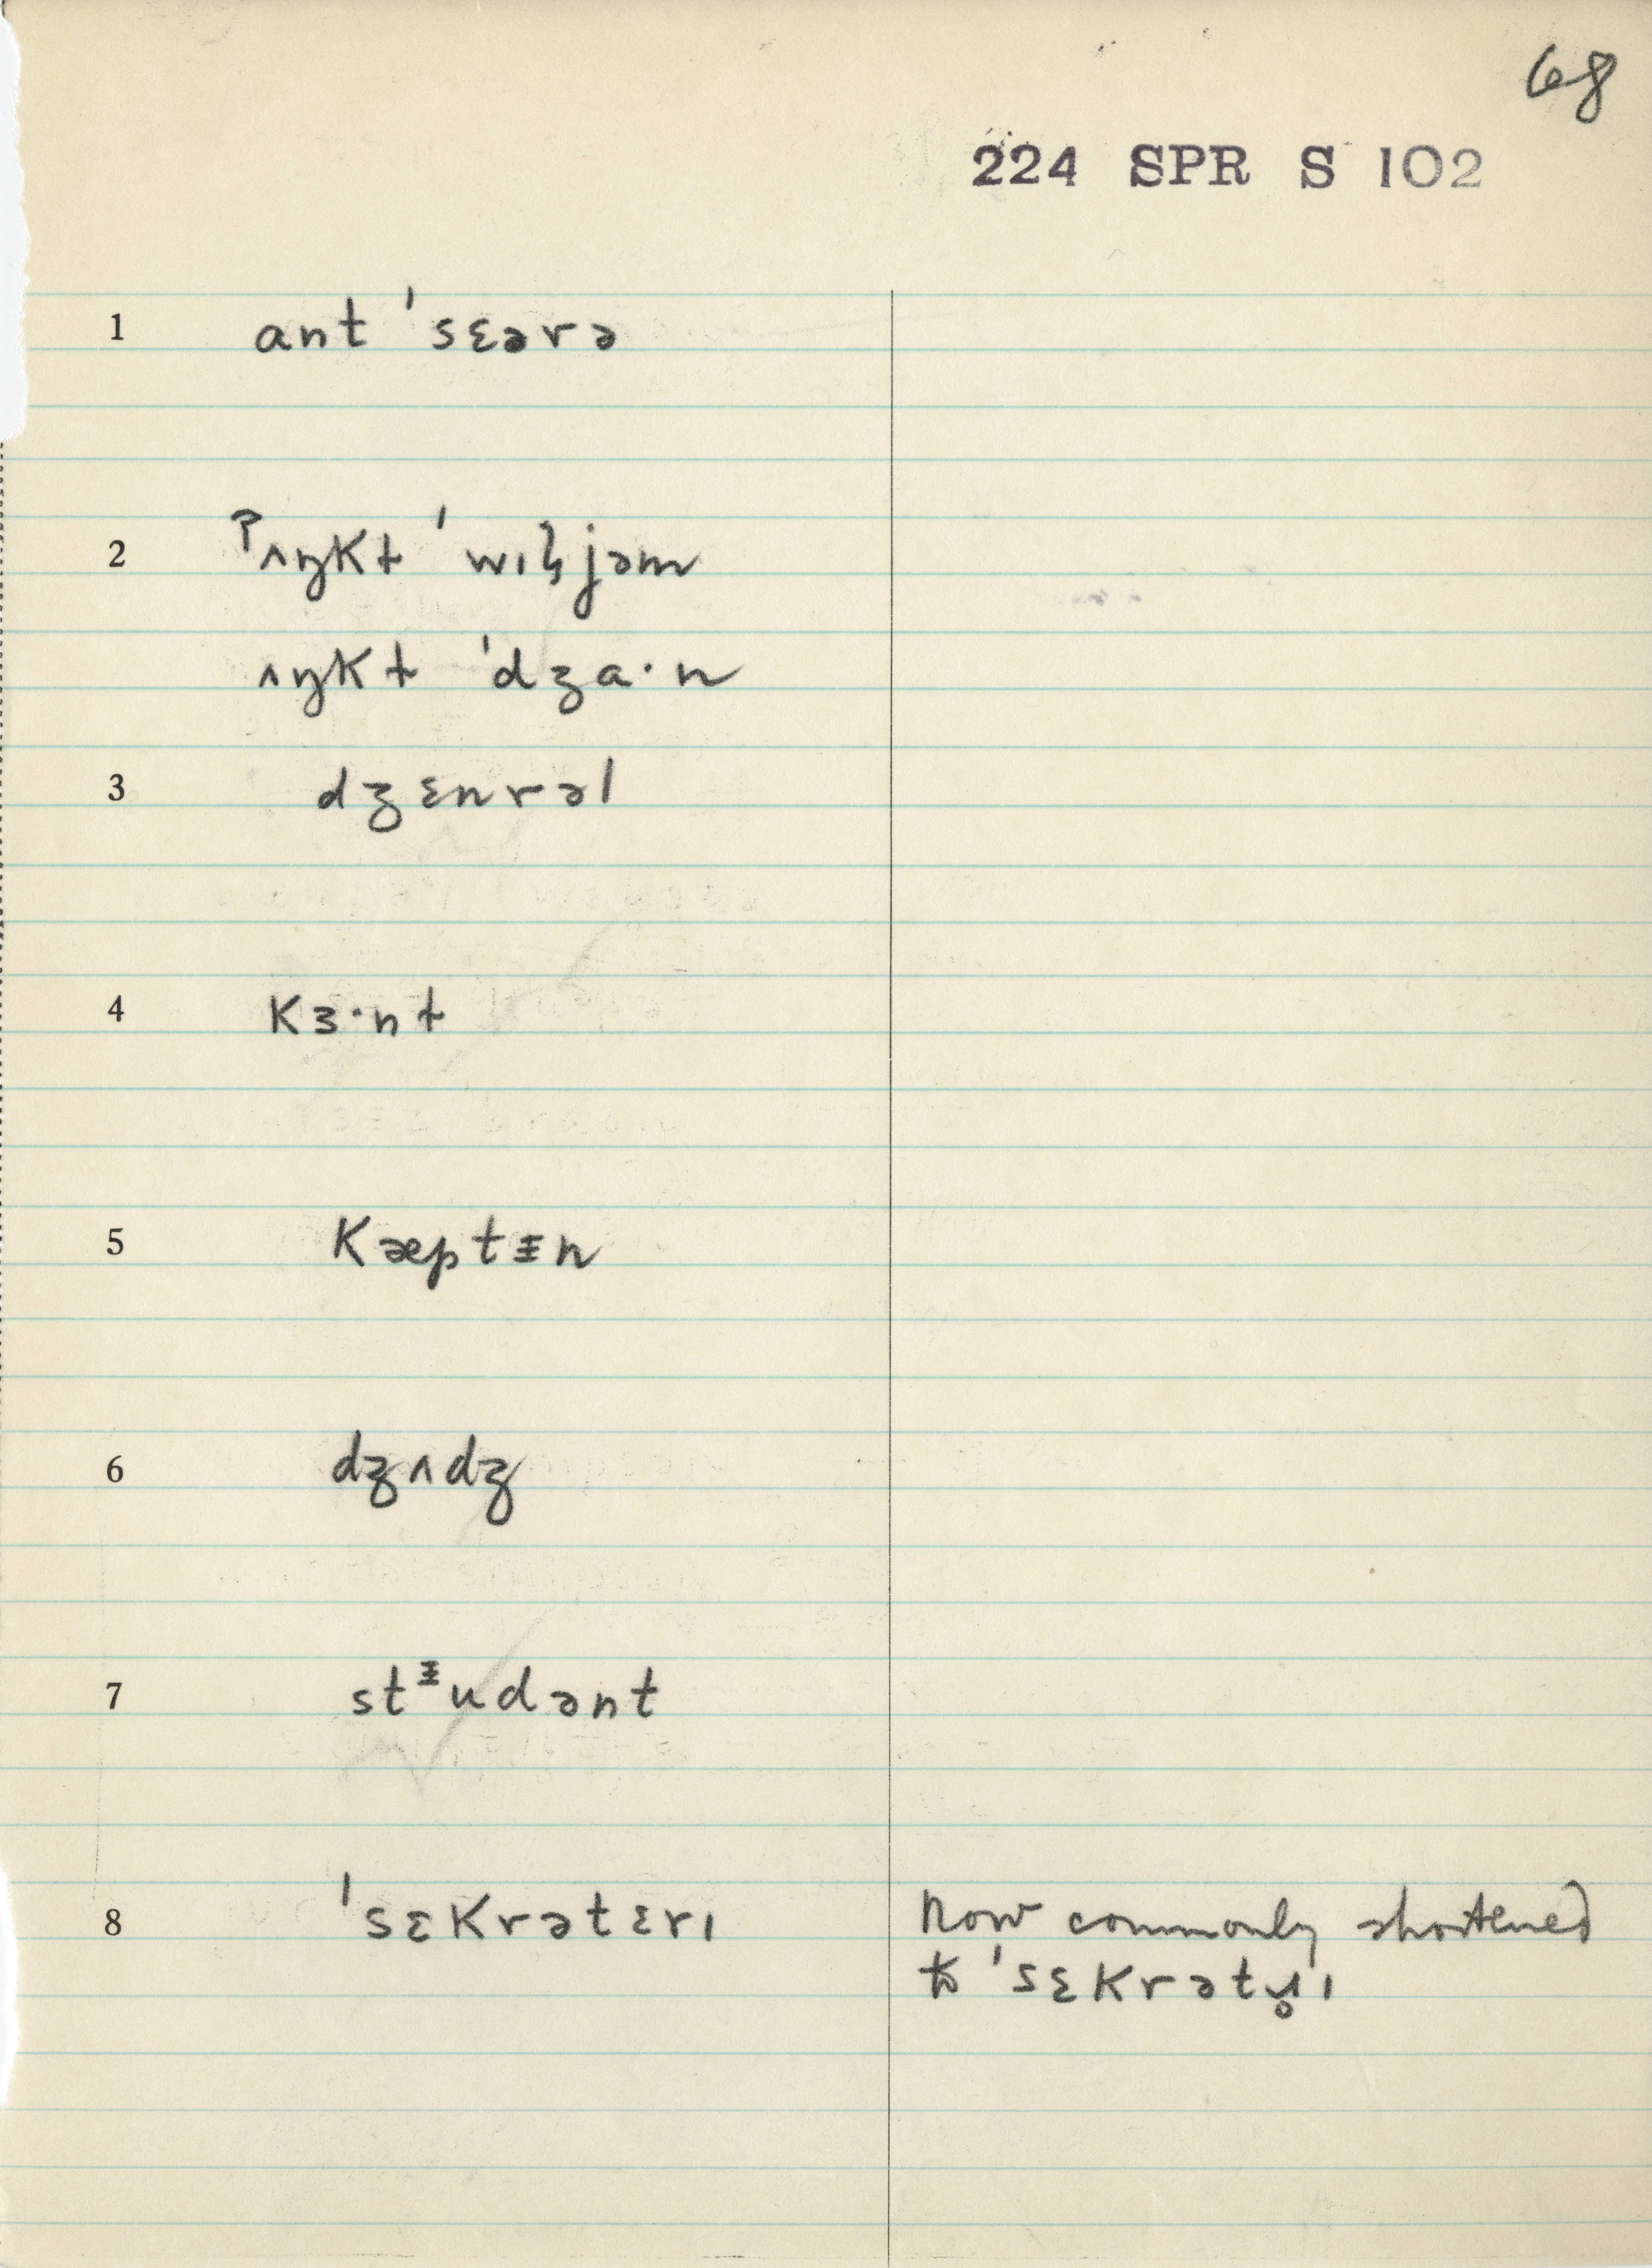 68
224 SPR S 102
1 ant ˈsɛərə
2 ʔʌŋkt ˈwɪl̡jəm
ʌŋkt ˈdʒa·n
3 dʒɛnrəl
4 kɜ·nt
5 kæptɪ̵n
6 dʒʌdʒ
7 stᵻudənt
8 ˈsɛkrətɛrɪ now commonly shortened
to ˈsɛkrətɹ̥ɪ